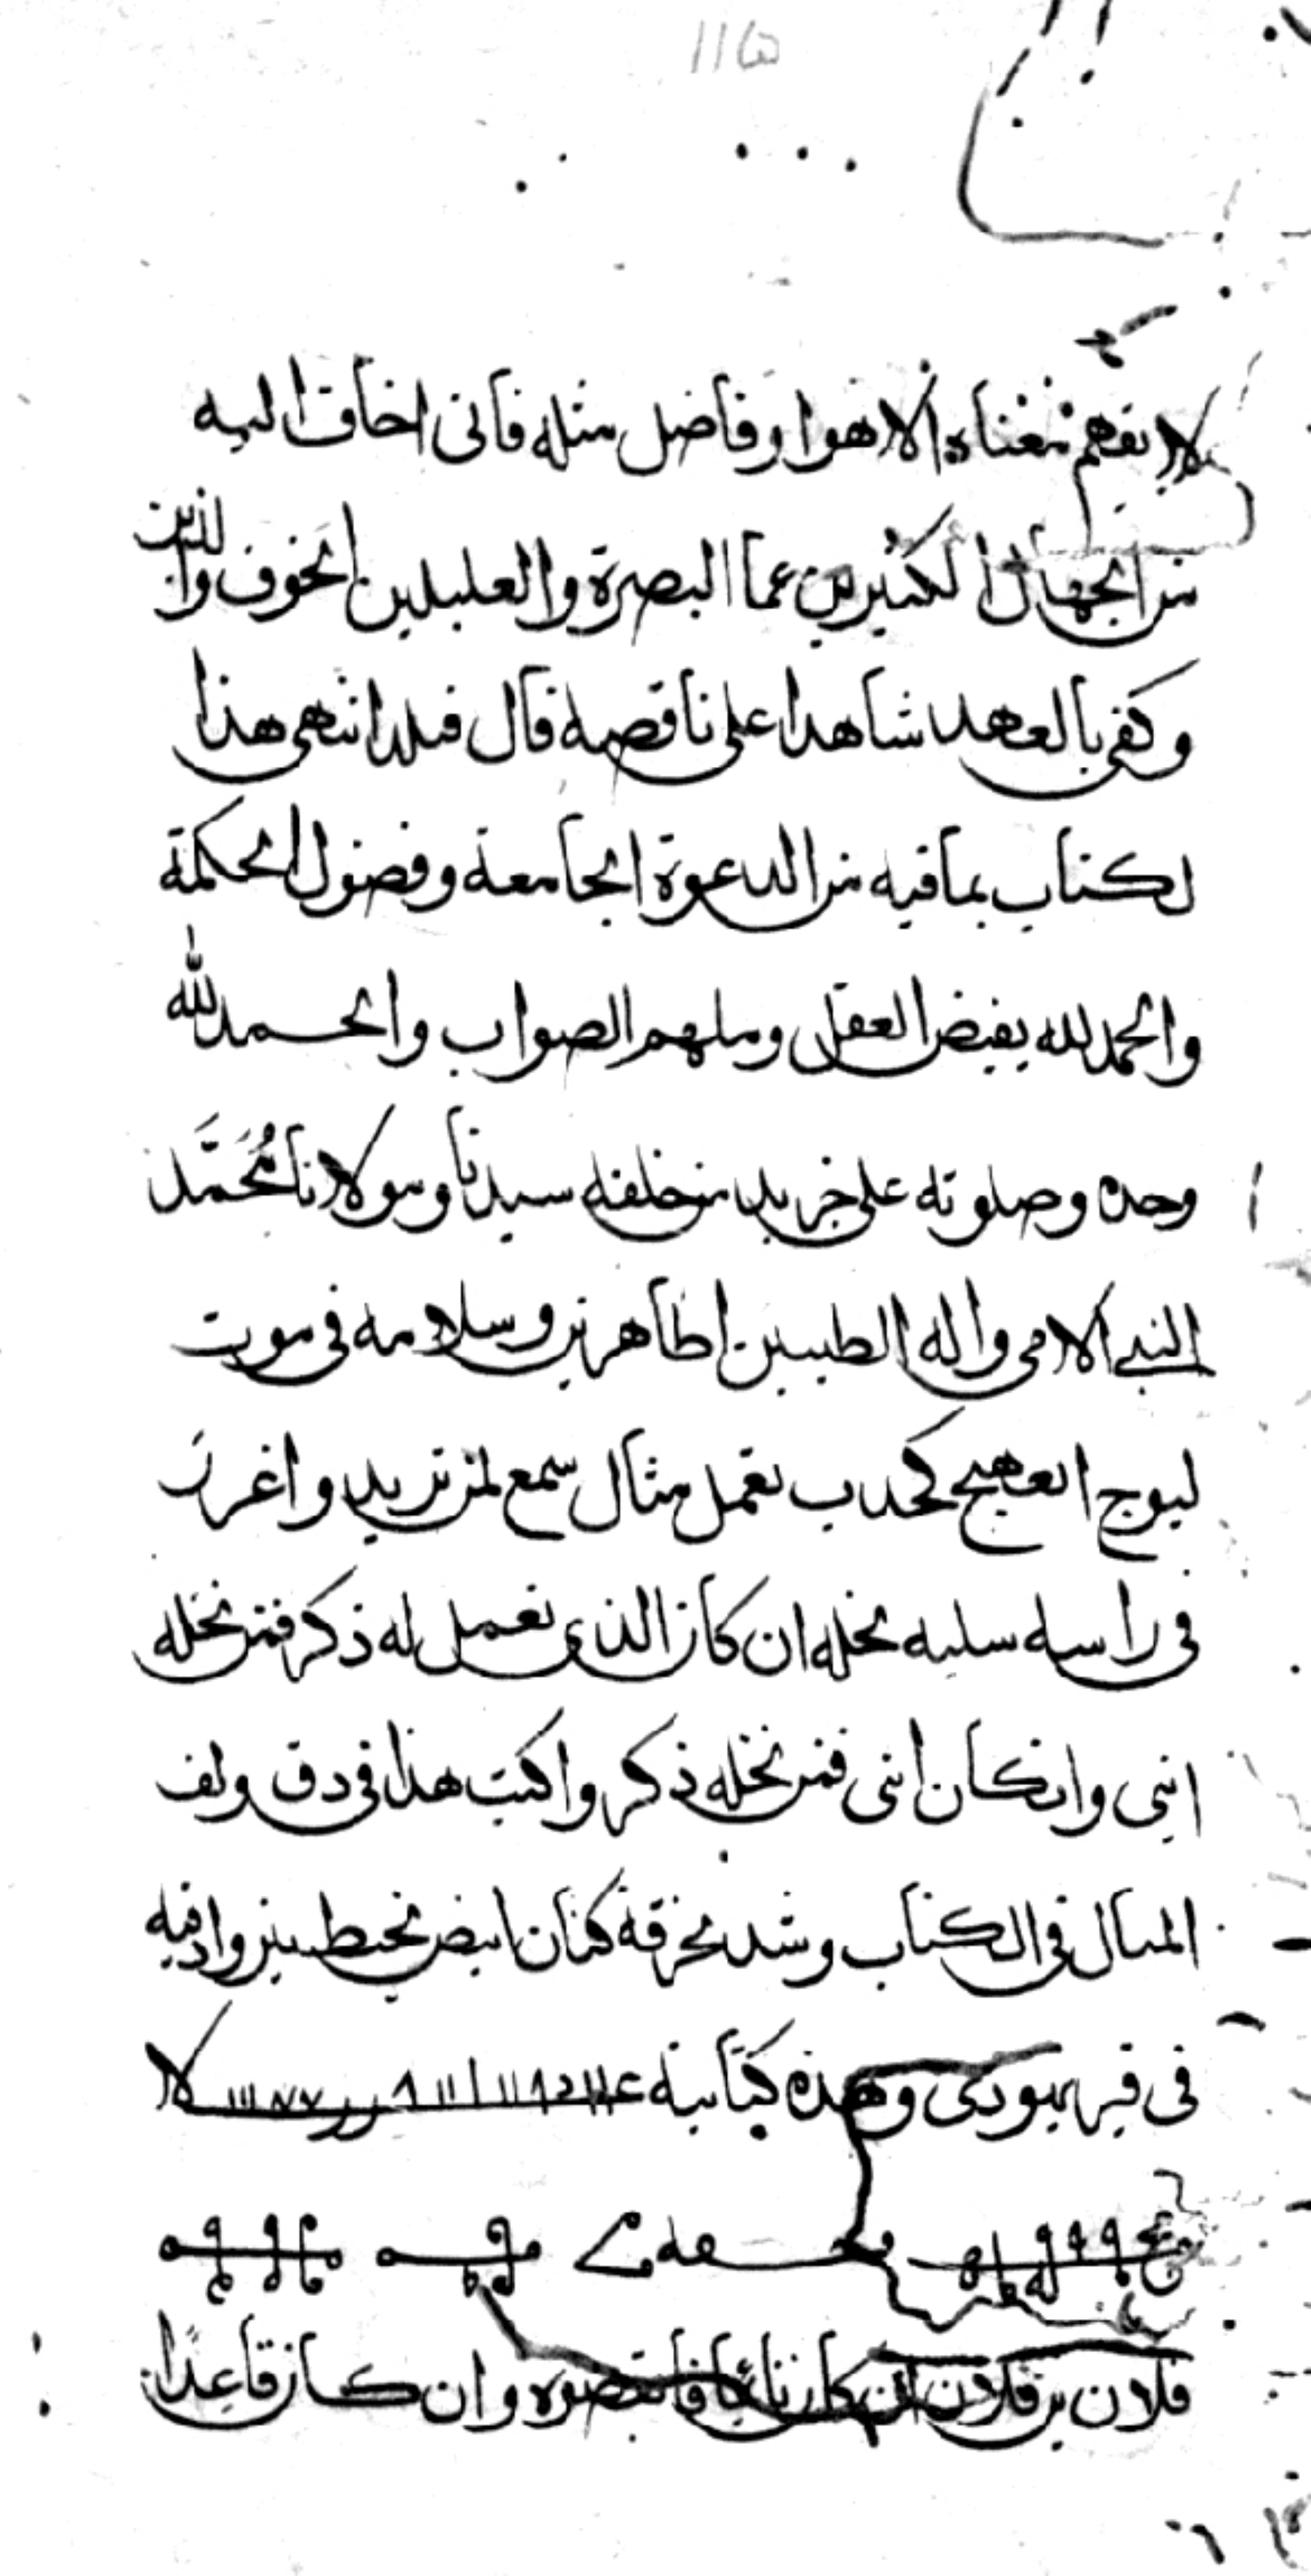 لا يفهم معناه الا هوا وفاضل مثله فانى اخاف اليه
من الجهال الكثيرين عما البصرة والعليلين الخوف والذين
وكفى بالعهد شاهدا على ناقصه قال فلما انتهى هذا
لكتاب بما فيه من الدعوة الجامعة وفضول الحكمة
والحمد لله يفيض العقل وملهم الصواب والحمد لله
وحده وصلوته على خر يد من خلقه سيدنا ومولانا مُحَمَّد
النبي الامى واله الطيبين اطاهرين وسلامه فى موت
ليوج العهيج كحدب تعمل مثال سمع لمن تريد واغرز
فى راسه سلبه نخله ان كان الذى تعمل له ذكر فمن نخله
انثى وان كان انثى فمن نخله ذكر واكتب هذا فى دق ولف
المثال فى الكتاب وشد بخرقة كتان ابيض بخيط
فى قبر يهودى وهذه كتابته
فلان بن فلان ان كان نائما وان كان قاعدا